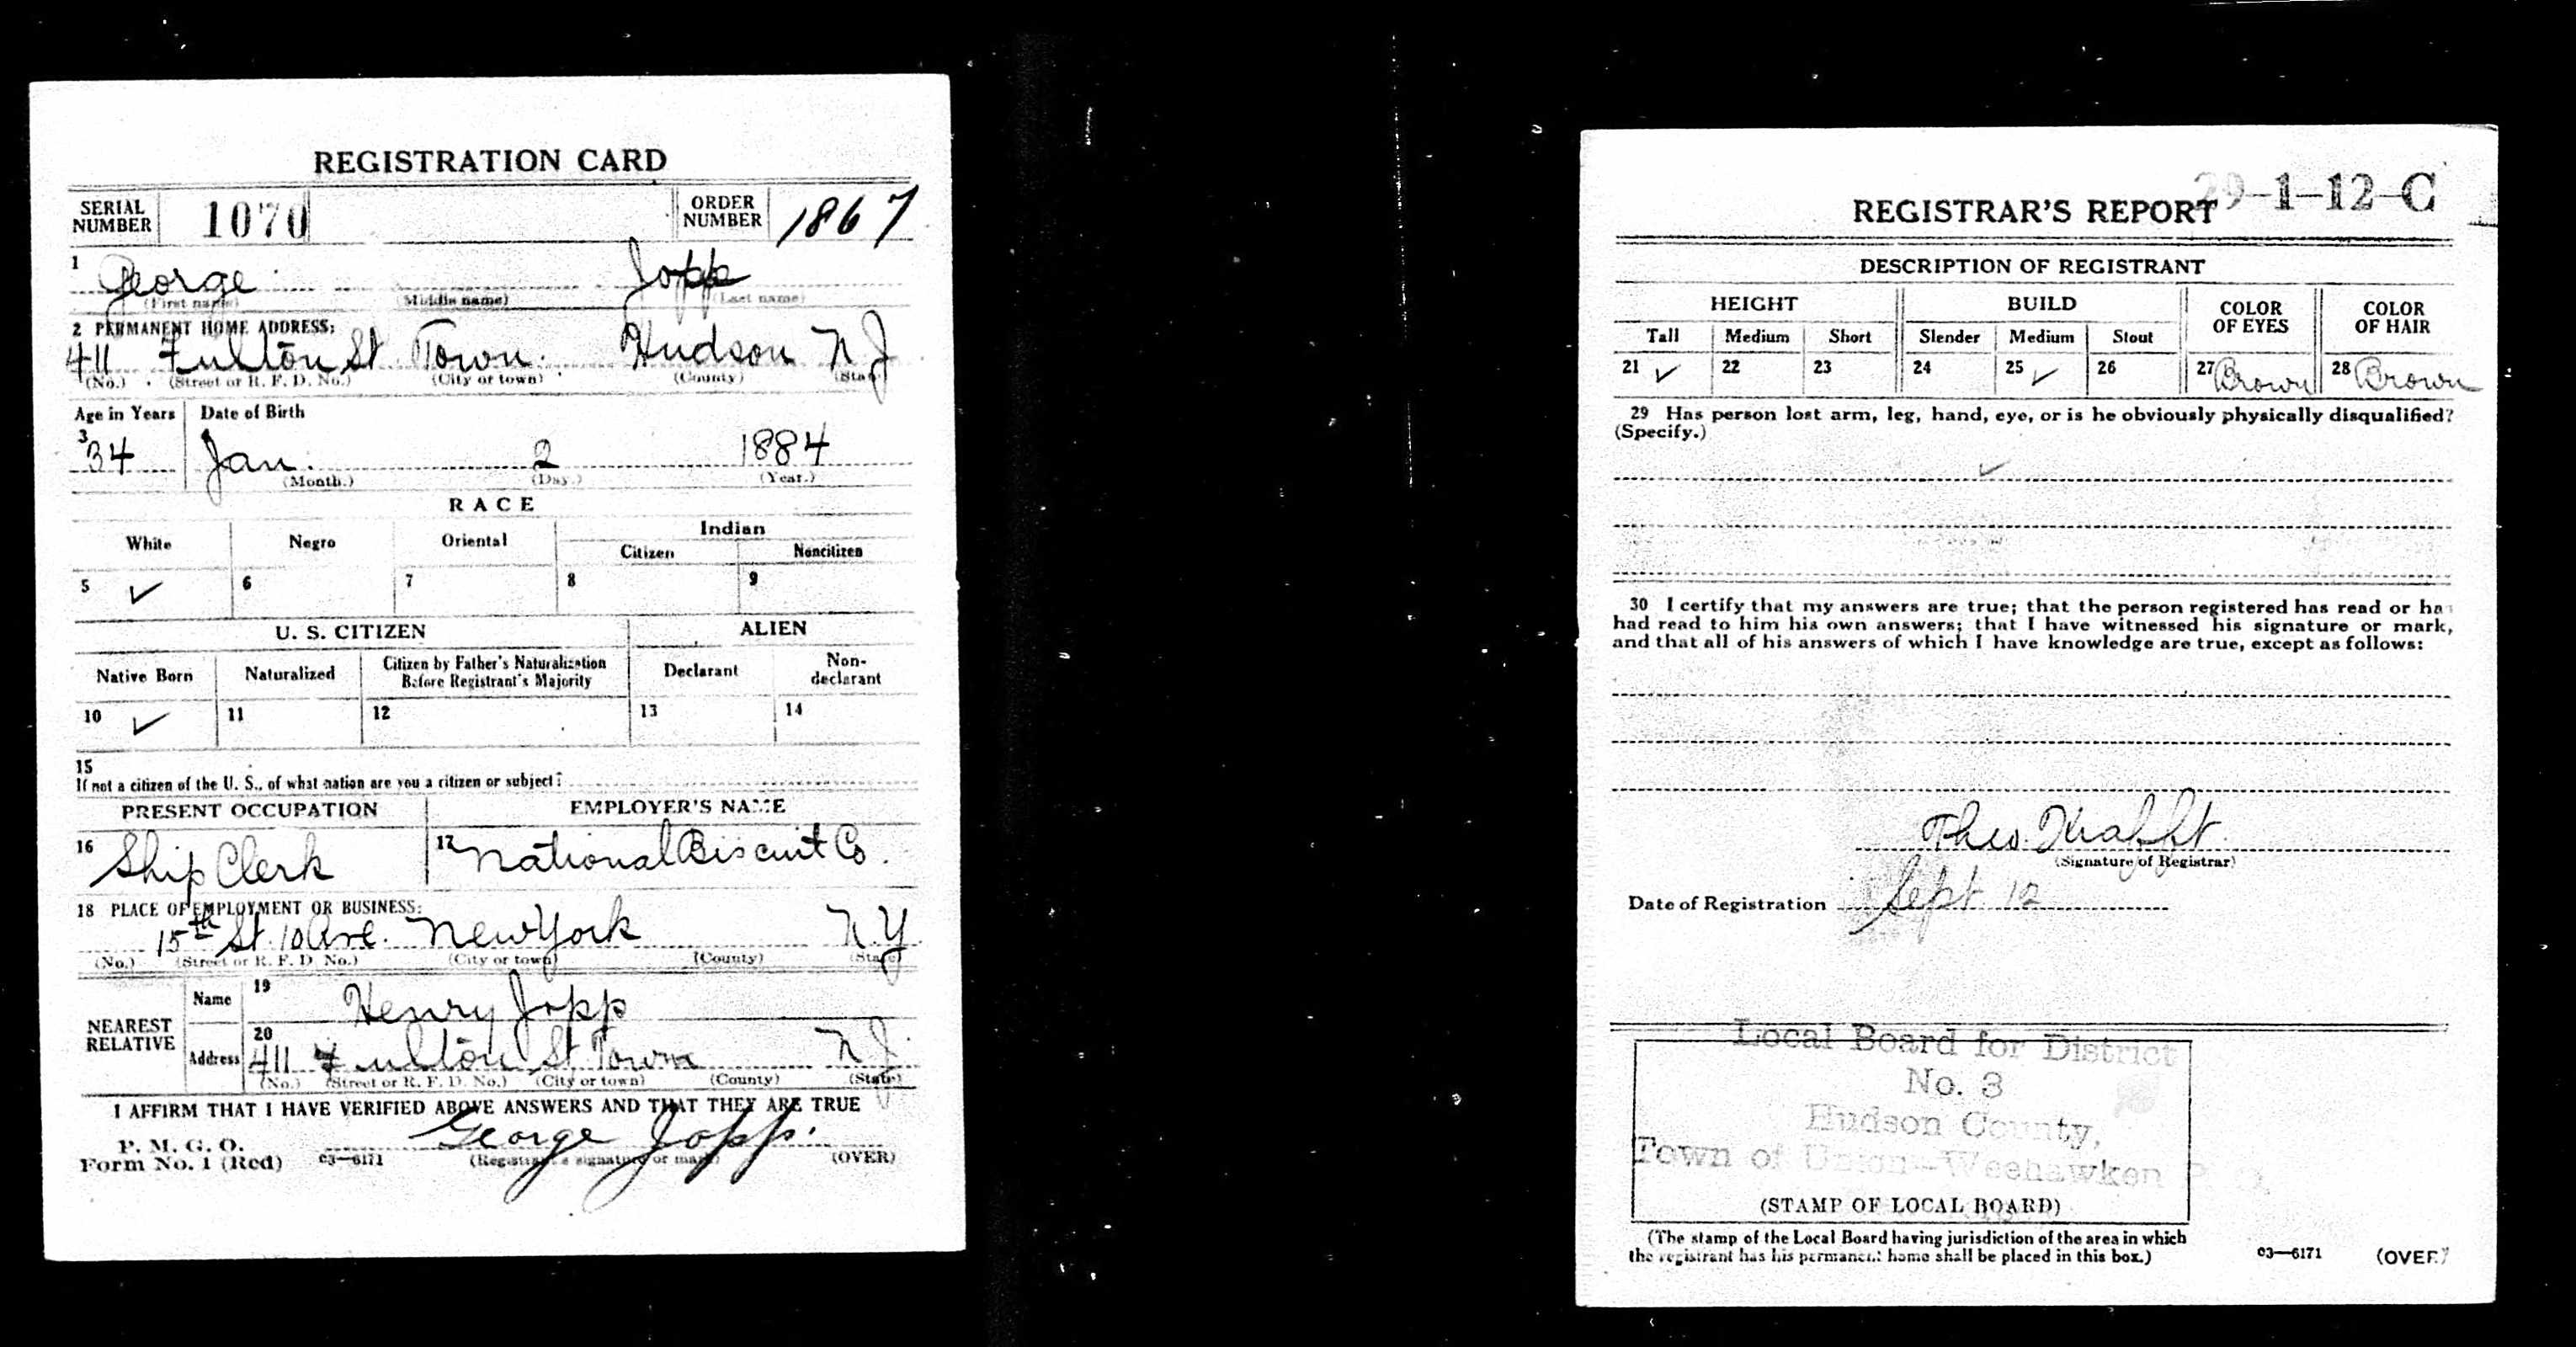 REGISTRATION CARD
SERIAL NUMBER 1070 ORDER NUMBER 1867
1 George Jopp
(First name) (Middle name) (Last name)
2 PERMANENT HOME ADDRESS:
411 Fulton St Town Hudson N J
(No.) (Street or R. F. D. No.) (City or town) (County) (State)
Age in Years Date of Birth
3 34 Jan. 2 1884
(Month.) (Day.) (Year.)
RACE
White Negro Oriental Indian
Citizen Noncitizen
5 ✓ 6 7 8 9
U. S. CITIZEN ALIEN
Native Born Naturalized Citizen by Father's Naturalization Before Registrant's Majority Declarant Non-declarant
10 ✓ 11 12 13 14
15
If not a citizen of the U. S., of what nation are you a citizen or subject?
PRESENT OCCUPATION EMPLOYER'S NAME
16 Ship Clerk 17 National Biscuit Co.
18 PLACE OF EMPLOYMENT OR BUSINESS:
15th St. 10 Ave. New York N.Y.
(No.) (Street or R. F. D. No.) (City or town) (County) (State)
NEAREST RELATIVE
Name 19 Henry Jopp
Address 20 411 Fulton St Town N J.
(No.) (Street or R. F. D. No.) (City or town) (County) (State)
I AFFIRM THAT I HAVE VERIFIED ABOVE ANSWERS AND THAT THEY ARE TRUE
P. M. G. O.
Form No. 1 (Red) 03—6171 George Jopp.
(Registrant's signature or mark) (OVER)
29-1-12-C
REGISTRAR'S REPORT
DESCRIPTION OF REGISTRANT
HEIGHT BUILD COLOR OF EYES COLOR OF HAIR
Tall Medium Short Slender Medium Stout
21 ✓ 22 23 24 25 ✓ 26 27 Brown 28 Brown
29 Has person lost arm, leg, hand, eye, or is he obviously physically disqualified?
(Specify.)
✓
30 I certify that my answers are true; that the person registered has read or has
had read to him his own answers; that I have witnessed his signature or mark,
and that all of his answers of which I have knowledge are true, except as follows:
Theo.
(Signature of Registrar)
Date of Registration Sept 12
Local Board for District
No. 3
Hudson County,
Town of Union-Weehawken P. O.
(STAMP OF LOCAL BOARD)
(The stamp of the Local Board having jurisdiction of the area in which
the registrant has his permanent home shall be placed in this box.)
03—6171 (OVER)